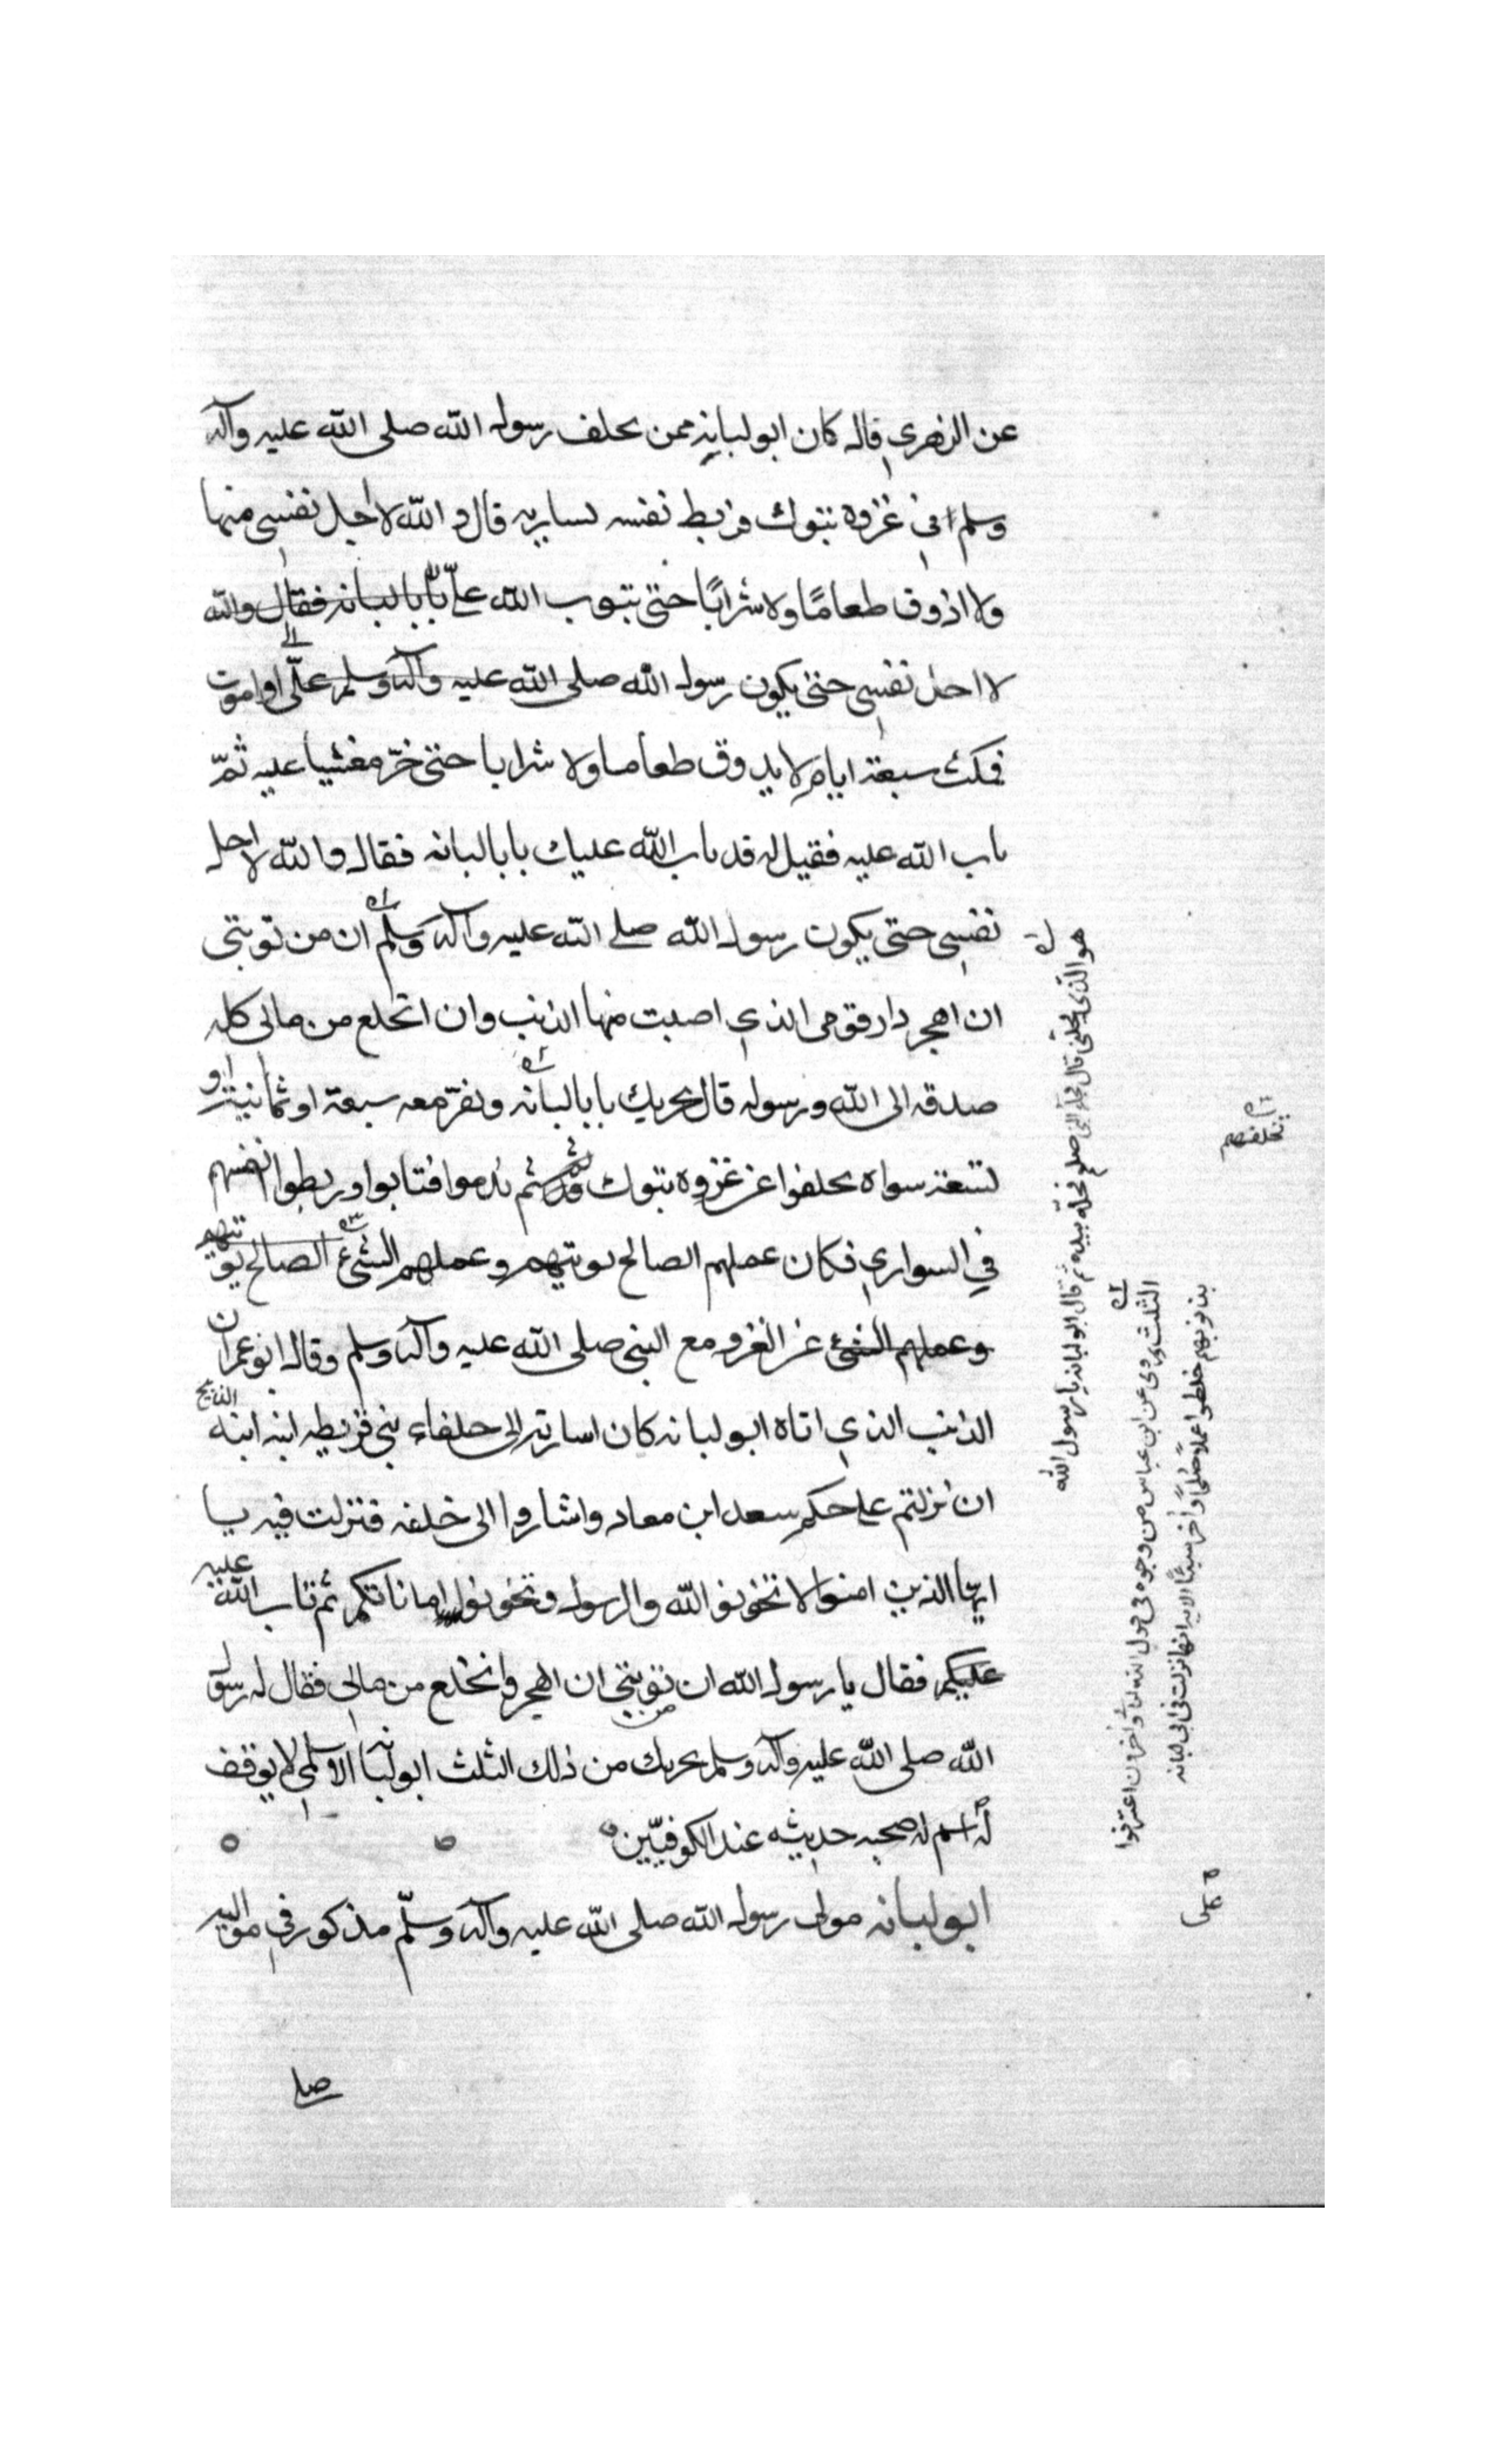 عن الزهري قال كان ابو لبابه ممن تخلف رسول الله صلى الله عليه وآله
وسلم في غزوة تبوك فربط نفسه بساريه قال و الله لا احل نفسي منها
ولا اذوق طعامًا ولا شرابًا حتى يتوب الله علىّ يا بالبانه فقال والله
لا احل نفسي حتى يكون رسول الله صلى الله عليه وآله وسلم علّى او اموت
فمكث سبعة ايام لا يذوق طعاما ولا شرابا حتى خرّ مغشيا عليه ثمّ
تاب الله عليه فقيل له قد تاب الله عليك يا بالبانه فقال والله لا احل
نفسي حتى يكون رسول الله صلى الله عليه وآله وسلم ان من توبتى
ان اهجر دار قومى الذي اصبت منها الذنب وان انخلع من مالى كله
صدقه الى الله ورسوله قال يجزيك يا بالبانه ونفرّ معه سبعة او ثمانية او
تسعة سواه تخلفوا عن غزوه تبوك ثم ندموا فتابوا وربطوا انفسهم
في السواري فكان عملهم الصالح توبتهم وعملهم السّئ الصالح توبتهم
وعملهم السّئ عن الغزو مع النبي صلى الله عليه وآله وسلم وقال ابو عمر ان
الذنب الذي اتاه ابو لبانه كان اسارته الى حلفاء بني قريظه انه الذبح
ان نزلتم على حكم سعد ابن معاد واشاروا الى خلفه فنزلت فيه يا
ايها الذين امنوا لا تخونوا الله والرسول وتخونوا اماناتكم ثم تاب الله عليه
عليكم فقال يا رسول الله ان من توبتي ان اهجر وانخلع من مالي فقال له رسول
الله صلى الله عليه وآله وسلم يجزيك من ذلك الثلث ابو لبانه الاسلمي لا يوقف
له اسم له صحبه حديثه عند الكوفيّين
ابو لبانه مولى رسول الله صلى الله عليه وآله وسلّم مذكور في مواليه
هو الذي يحلني قال فجاء النبي صلعم فحله بيده ثم قال ابو لبانه يا رسول الله
تخلفهم
الثلث وروى عن ابن عباس من وجوه في قول الله تعالى وآخرون اعترفوا
بذنوبهم خلطوا عملا صالحًا وآخر سيئًا الايه انها نزلت في ابى لبابه